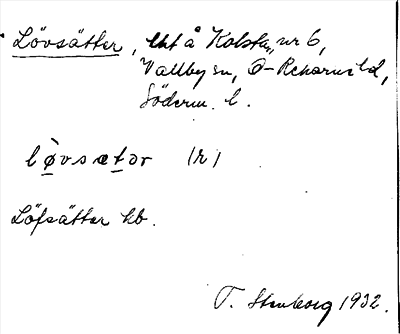 Lövsätter, lht å Kolsta, nr 6,
Vallby sn, Ö-Rekarne hd,
Söderm. l.
lø̀vsætər (r)
Löfsätter kb.
T. Stenborg 1932.